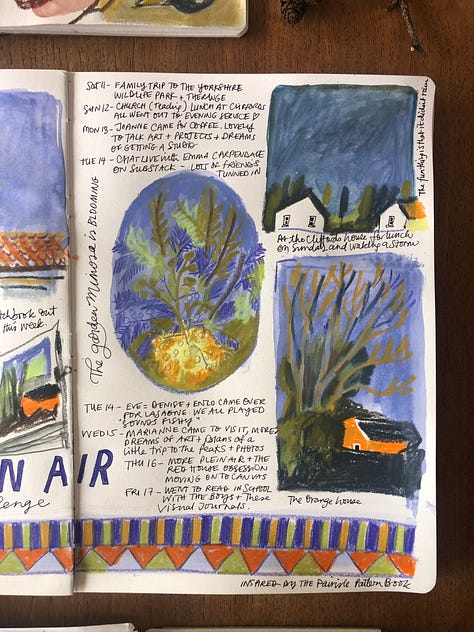 SAT 11 - FAMILY TRIP TO THE YORKSHIRE
WILDLIFE PARK + THE RANGE
SUN 12 - CHURCH (Trading) LUNCH AT CLIFFORDS
ALL WENT OUT TO EVENING SERVICE
MON 13 - JOANNE CAME for COFFEE. LOVELY
TO TALK ART + PROJECTS + DREAMS
OF GETTING A STUDIO
TUE 14 - CHAT LIVE with EMMA CARPENDALE
ON SUBSTACK - LOTS OF FRIENDS
TUNNED IN
The funny thing is that it didn't rain
At the Cliffords house for lunch
on Sunday and waiting a storm
The golden Mimosa is BLOOMING
TUE 14 - EVE - DENISE + ENZO CAME OVER
FOR LASAGNE WE ALL PLAYED
SOUNDS FISHY
WED 15 - MARIANNE CAME TO VISIT, MORE
DREAMS OF ART + plans of a
little trip to the peaks + PHOTOS
THU 16 - MORE PLEIN AIR + THE
RED HOUSE OBSESSION
MOVING ON TO CANVAS
FRI 17 - WENT TO READ IN SCHOOL
WITH THE BOYS + these
Visual Journals.
The Orange house
tchbook out
this week.
N AIR
lenge
INSPIRED BY THE Parisile Pattern Book